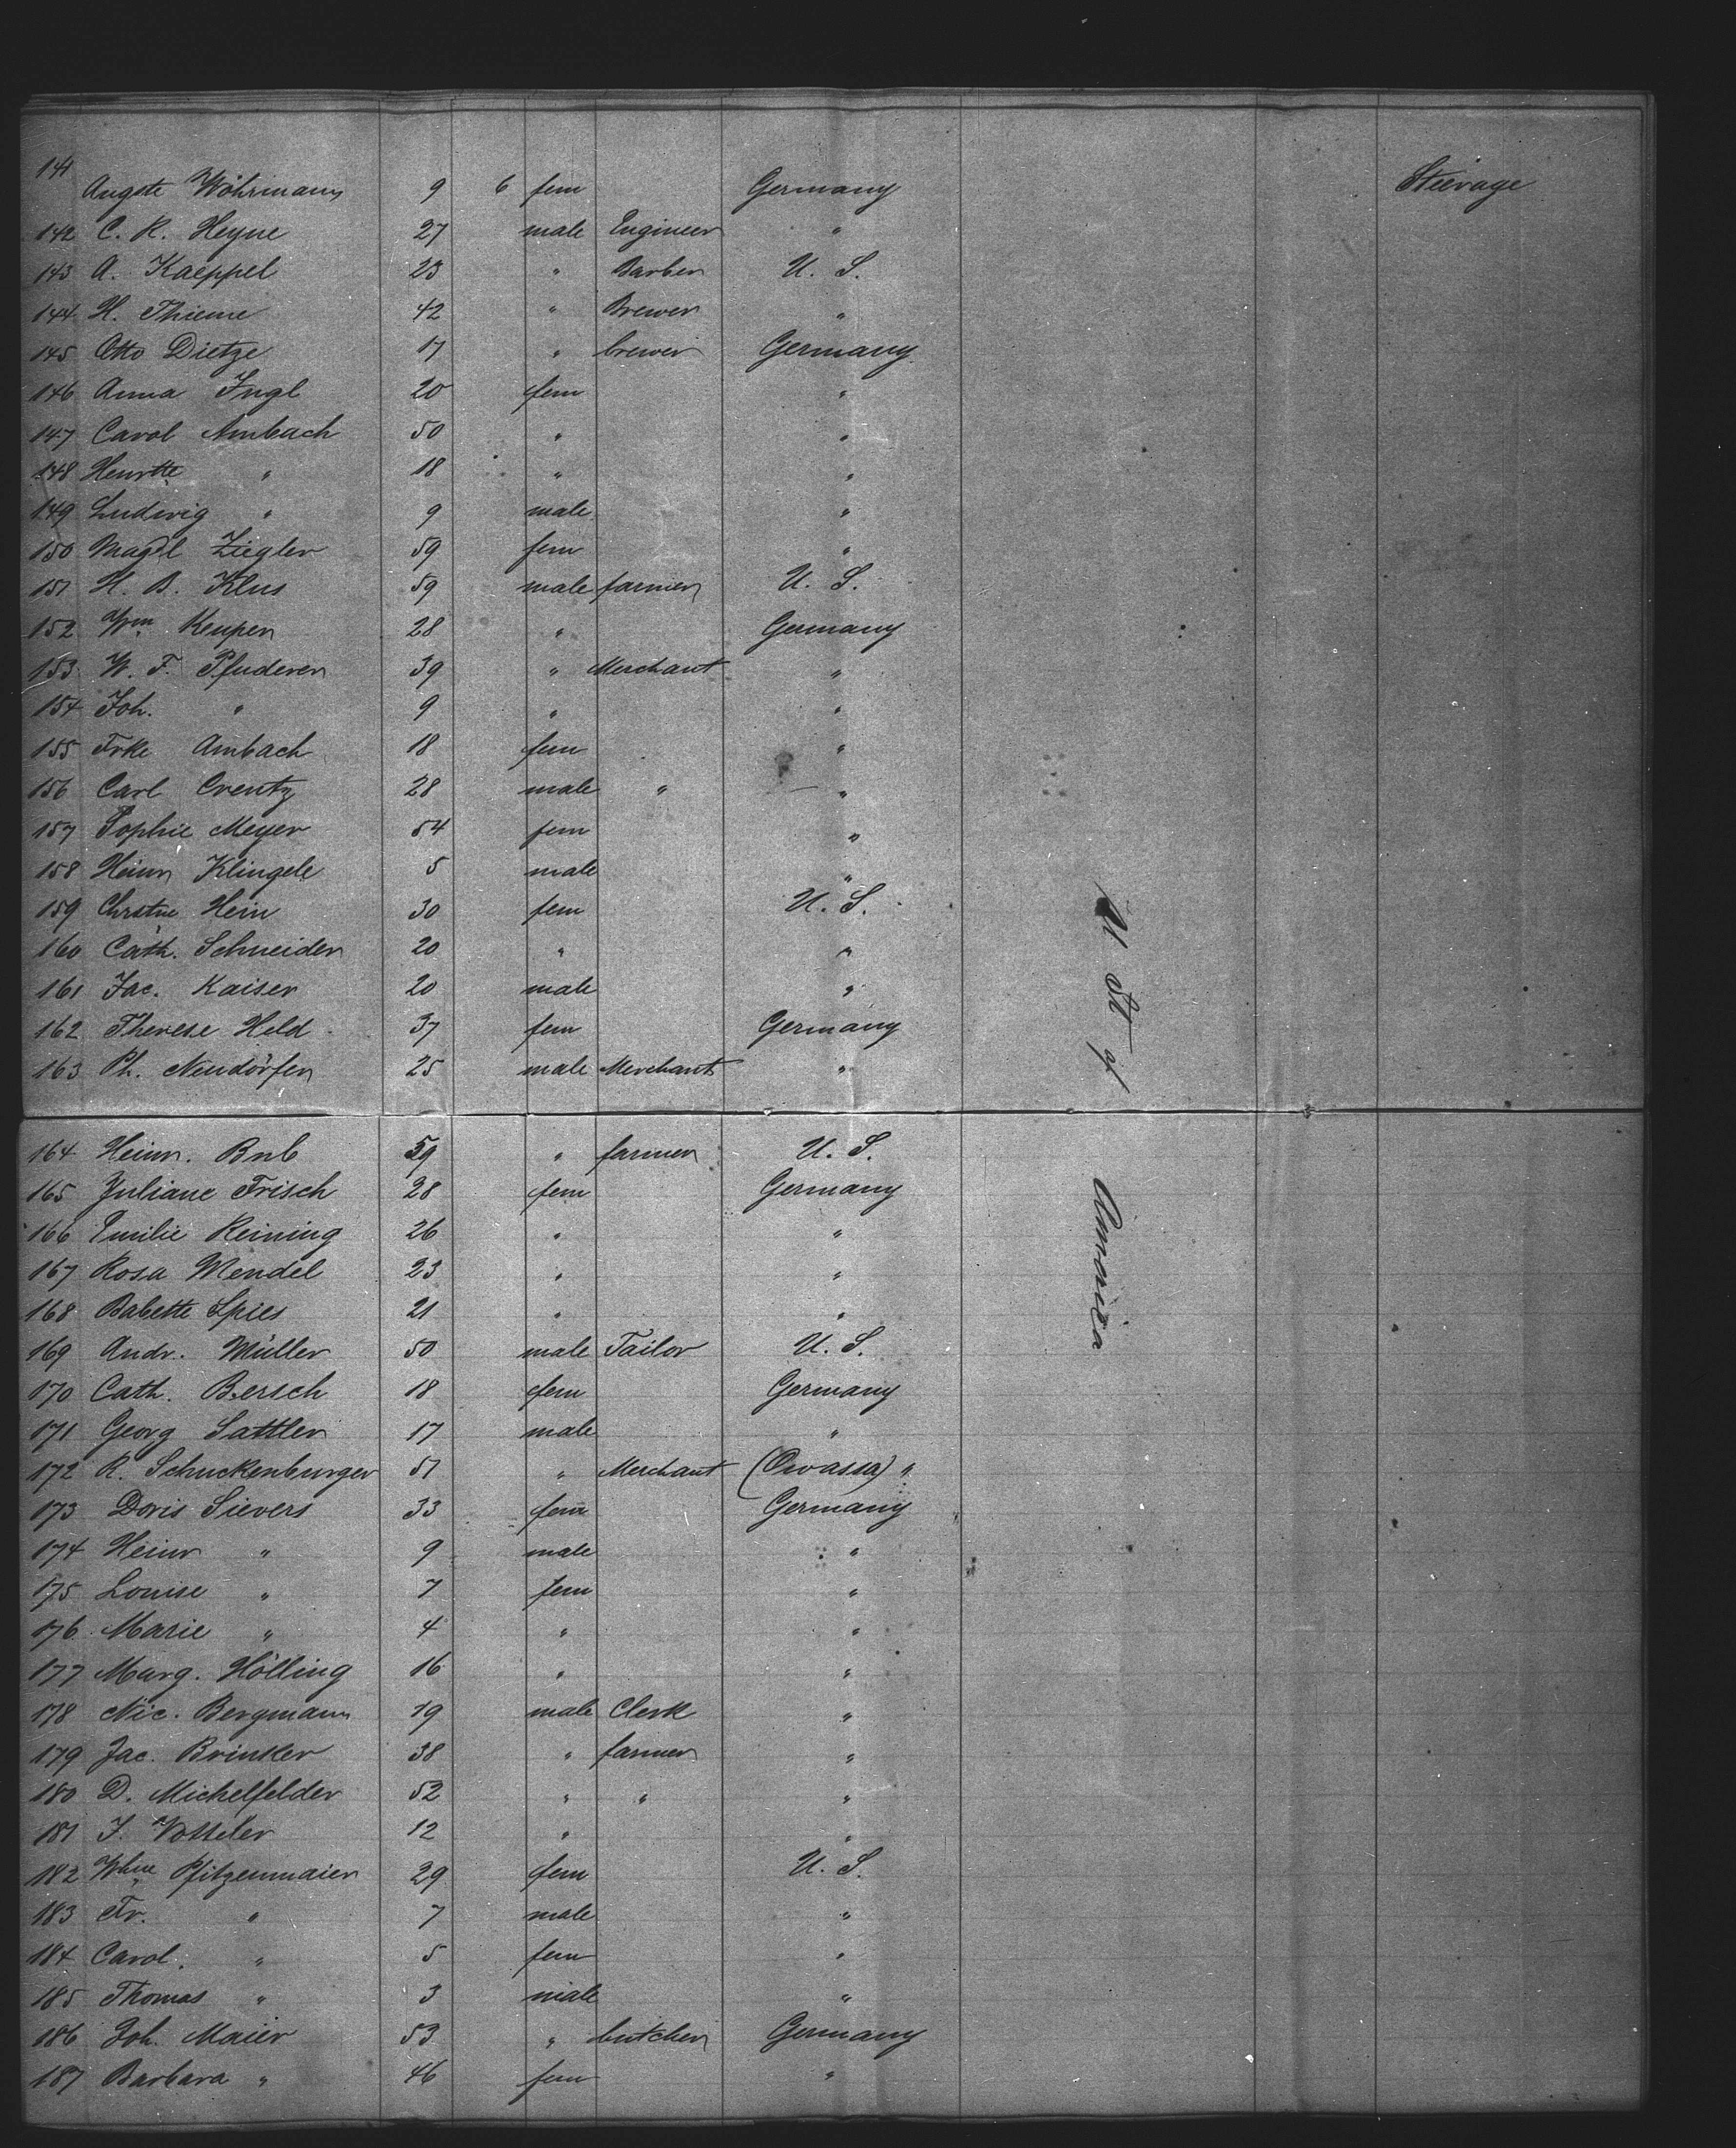 141 Augste Wöhrmann 9 6 fem Germany Steerage
142 C. R. Heyne 27 male Engineer "
143 A. Kaeppel 23 " Barber U. S.
144 H. Thieme 42 " Brewer "
145 Otto Dietze 17 " brewer Germany
146 Anna Ingl 20 fem "
147 Carol Ambach 50 " "
148 Henrtte " 18 " "
149 Ludwig " 9 male "
150 Magdl Ziegler 59 fem "
151 H. B. Klus 59 male farmer U. S.
152 Wm Keuper 28 " Germany
153 W. F. Pfuderer 39 " Merchant "
154 Joh. " 9 " "
155 Frke Ambach 18 fem "
156 Carl Creutz 28 male " "
157 Sophie Meyer 54 fem "
158 Heinr Klingele 5 male "
159 Chrstne Hein 30 fem U. S.
160 Cath. Schneider 20 " "
161 Jac. Kaiser 20 male "
162 Therese Held 37 fem Germany
163 Ph. Neudörfer 25 male Merchant "
U St of
164 Heinr. 59 " farmer U. S.
165 Juliane Frisch 28 fem Germany
166 Emilie Reining 26 " "
167 Rosa Mendel 23 " "
168 Babette Spies 21 " "
169 Andr. Müller 50 male Tailor U. S.
America
170 Cath. Bersch 18 fem Germany
171 Georg Sattler 17 male "
172 R. Schuckenburger 51 " Merchant "
173 Doris Sievers 33 fem Germany
174 Heinr " 9 male "
175 Louise " 7 fem "
176 Marie " 4 " "
177 Marg. Hölling 16 " "
178 Nic. Bergmann 19 male Clerk "
179 Jac. Brinker 38 " farmer "
180 D. Michelfelder 52 " " "
181 J. Votteler 12 " "
182 Whne Pfitzenmaier 29 fem U. S.
183 Fr. " 7 male "
184 Carol. " 5 fem "
185 Thomas " 3 male "
186 Joh. Maier 53 " butcher Germany
187 Barbara " 46 fem "